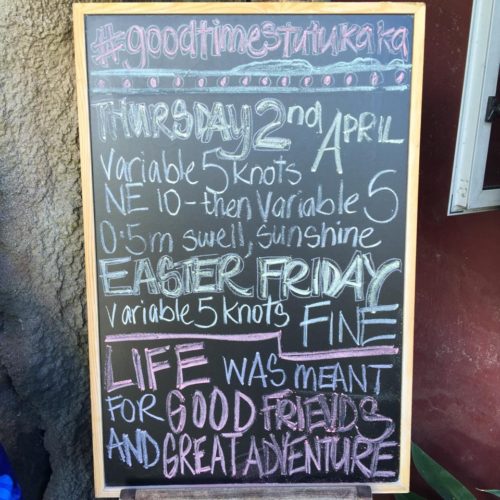 #goodtimestutukaka
THURSDAY 2nd APRIL
Variable 5 knots
NE 10 - then Variable 5
0.5m swell, sunshine
EASTER FRIDAY
Variable 5 knots FINE
LIFE WAS MEANT
FOR GOOD FRIENDS
AND GREAT ADVENTURE